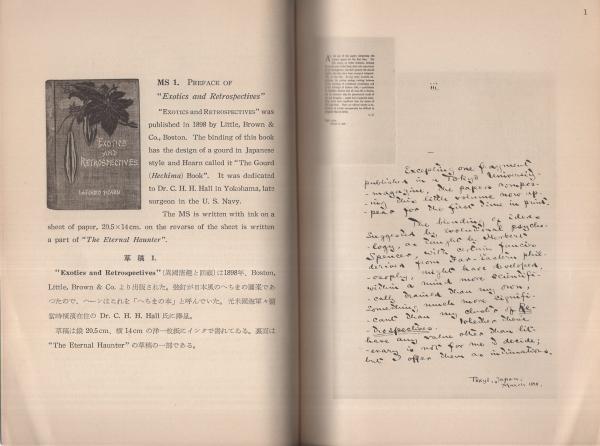 MS 1. PREFACE OF
"Exotics and Retrospectives"
"EXOTICS AND RETROSPECTIVES" was
published in 1898 by Little, Brown &
Co., Boston. The binding of this book
has the design of a gourd in Japanese
style and Hearn called it "The Gourd
(Hechima) Book". It was dedicated
to Dr. C. H. H. Hall in Yokohama, late
surgeon in the U. S. Navy.
The MS is written with ink on a
sheet of paper, 20.5×14 cm. on the reverse of the sheet is written
a part of "The Eternal Haunter".
EXOTICS
AND
RETROSPECTIVES
LAFCADIO HEARN
草稿 1.
"Exotics and Retrospectives" (異國情趣と回顧)は1898年、Boston,
Little, Brown & Co. より出版された。裝釘が日本風のへちまの圖案であ
つたので、ヘーンはこれを「へちまの本」と呼んでいた。元米國海軍々醫
當時横濱在住の Dr. C. H. H. Hall 氏に捧呈。
草稿は縱 20.5cm、横 14cm の洋一枚紙にインクで書れてある。裏面は
"The Eternal Haunter" の草稿の一部である。
1
Excepting one fragment
published in a Tokyo University-
magazine, the papers compos-
ing this little volume now ap-
pear for the first time in print.
The blending of ideas
suggested by evolutional psycho-
logy, as taught by Herbert
Spencer, with certain fancies
derived from Far-Eastern phil-
osophy, might have developed,
within a mind more scientifi-
cally trained than my own,
something much more signifi-
cant than my cluster of Re-
trospectives. Whether these
have any value other than lit-
erary is not for me to decide;
but I offer them as intimations.
Tōkyō, Japan,
March 1898.